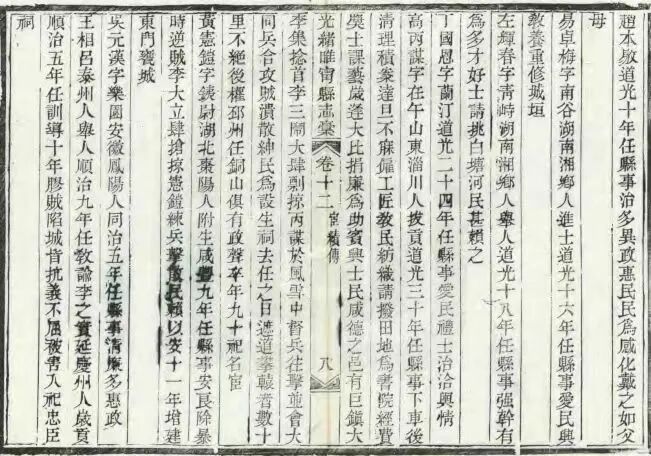 趙本敭道光十年任縣事治多異政惠民民爲感化戴之如父
母
易卓梅字南谷湖南湘鄉人進士道光十六年任縣事愛民興
敎養重修城垣
左輝春字靑峙湖南湘鄉人舉人道光十八年任縣事强幹有
爲多才好士請挑白塘河民甚賴之
丁國恩字蘭汀道光二十四年任縣事愛民禮士治洽輿情
高丙謀字在午山東淄川人拔貢道光三十年任縣事下車後
淸理積案達旦不寐僱工匠敎民紡織請撥田地爲書院經費
與士課藝歲逢大比捐廉爲助賓興士民咸德之邑有巨鎭大
光緖睢甯縣志稾 卷十二 宦績傳 八
李集捻首李三鬧大肆剽掠丙謀於風雪中督兵往擊並會大
同兵合攻賊潰散紳民爲設生祠去任之日遮道攀轅者數十
里不絕後權邳州任銅山俱有政聲卒年九十祀名宦
黃憲鎧字銕尉湖北棗陽人附生咸豐九年任縣事安良除暴
時逆賊李大立肆搶掠憲鎧練兵擊散民賴以安十一年增建
東門甕城
吳元漢字樂園安徽鳳陽人同治五年任縣事淸廉多惠政
王相呂泰州人舉人順治九年任敎諭李之實延慶州人歲貢
順治五年任訓導十年膠賊陷城皆抗義不屈被害入祀忠臣
祠